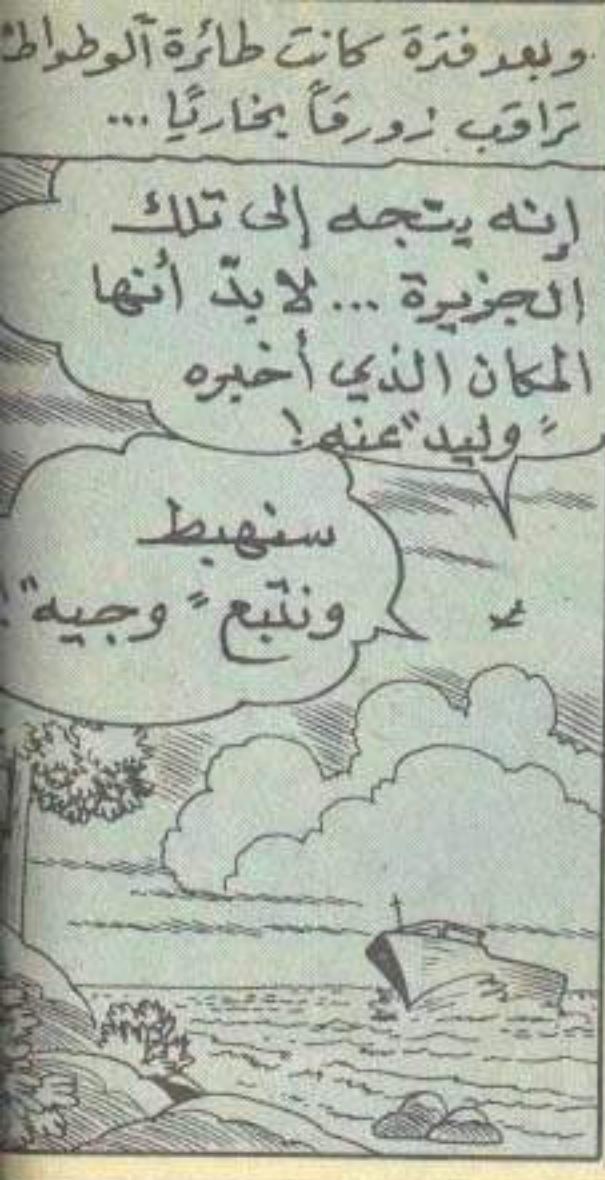 وبعد فترة كانت طائرة الوطواط
تراقب زورقاً بخاريًا ...
إنه يتجه إلى تلك
الجزيرة ... لا بدّ أنها
المكان الذي أخبره
"وليد" عنه!
سنهبط
ونتبع "وجيه"!